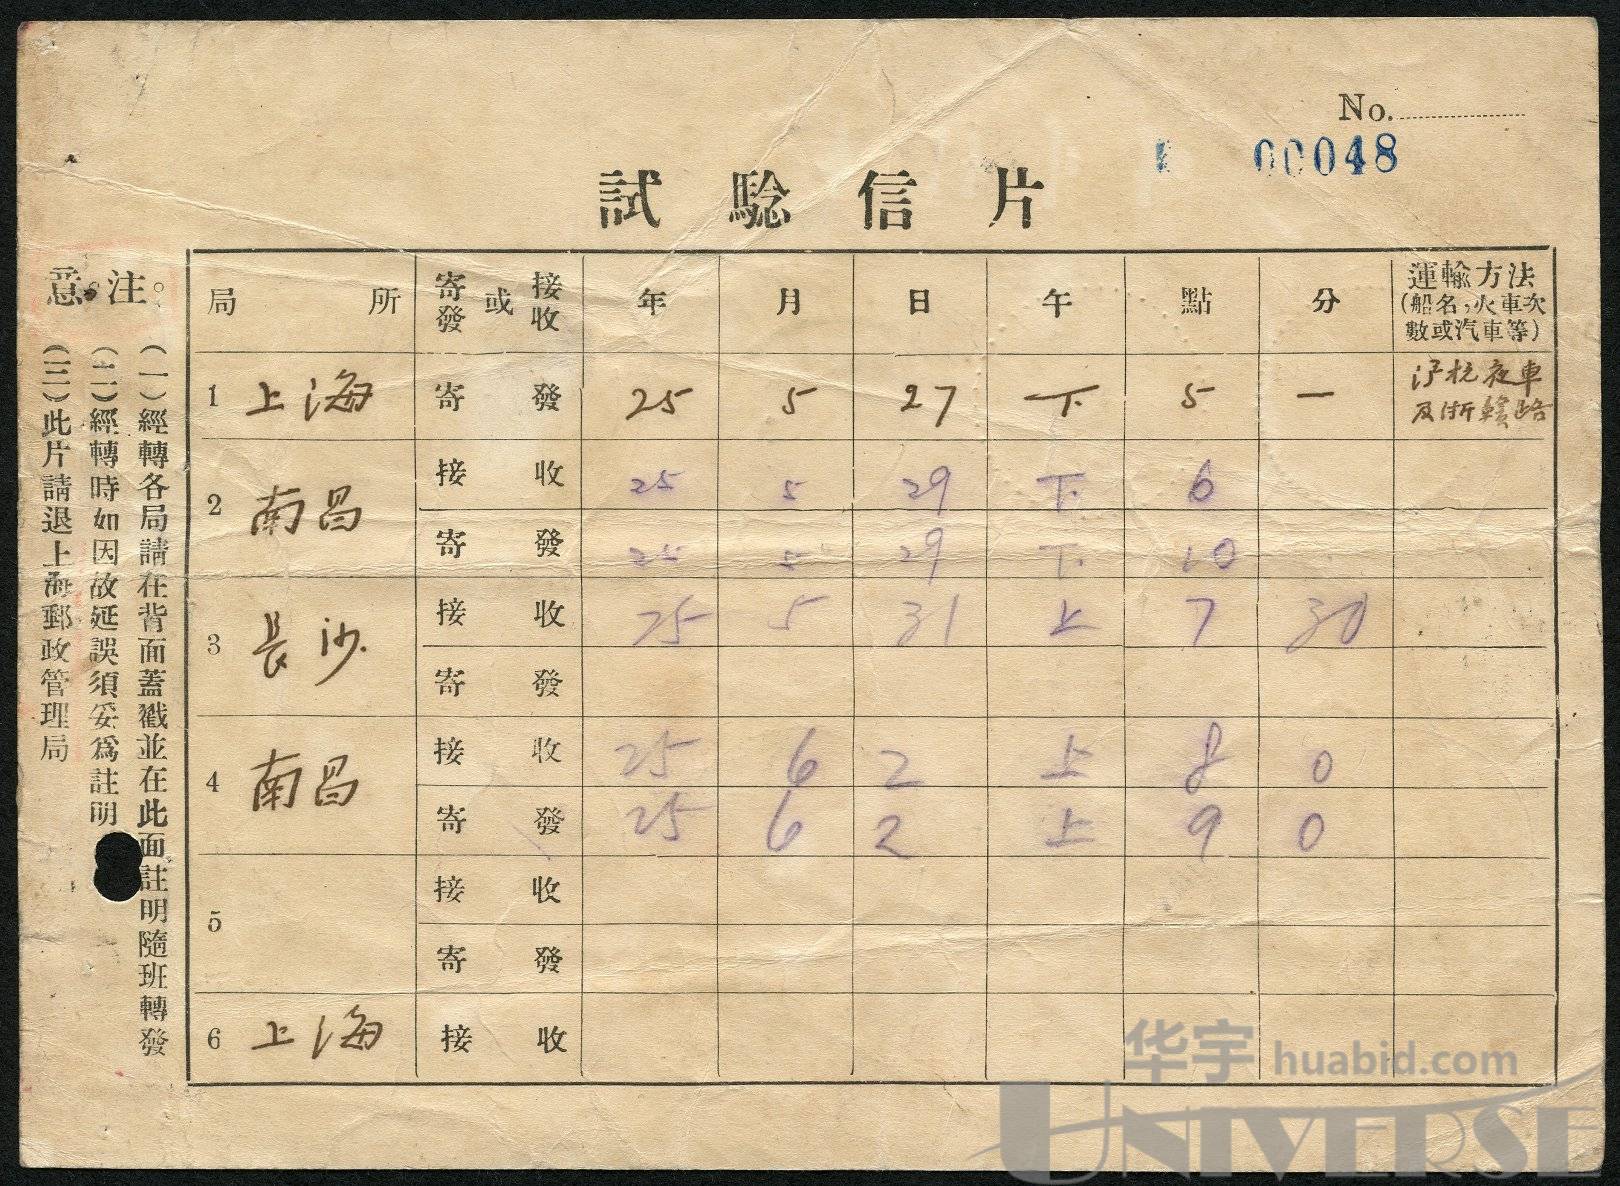 No.
00048
試驗信片
注意
(一)經轉各局請在背面蓋戳並在此面註明隨班轉發
(二)經轉時如因故延誤須妥爲註明
(三)此片請退上海郵政管理局
局所 寄發或接收 年 月 日 午 點 分 運輸方法(船名,火車次數或汽車等)
1 上海 寄發 25 5 27 下 5 一 沪杭夜車及浙贛路
2 南昌 接收 25 5 29 下 6
寄發 25 5 29 下 10
3 長沙 接收 25 5 31 上 7 30
寄發
4 南昌 接收 25 6 2 上 8 0
寄發 25 6 2 上 9 0
5 接收
寄發
6 上海 接收
华宇 huabid.com
UNIVERSE